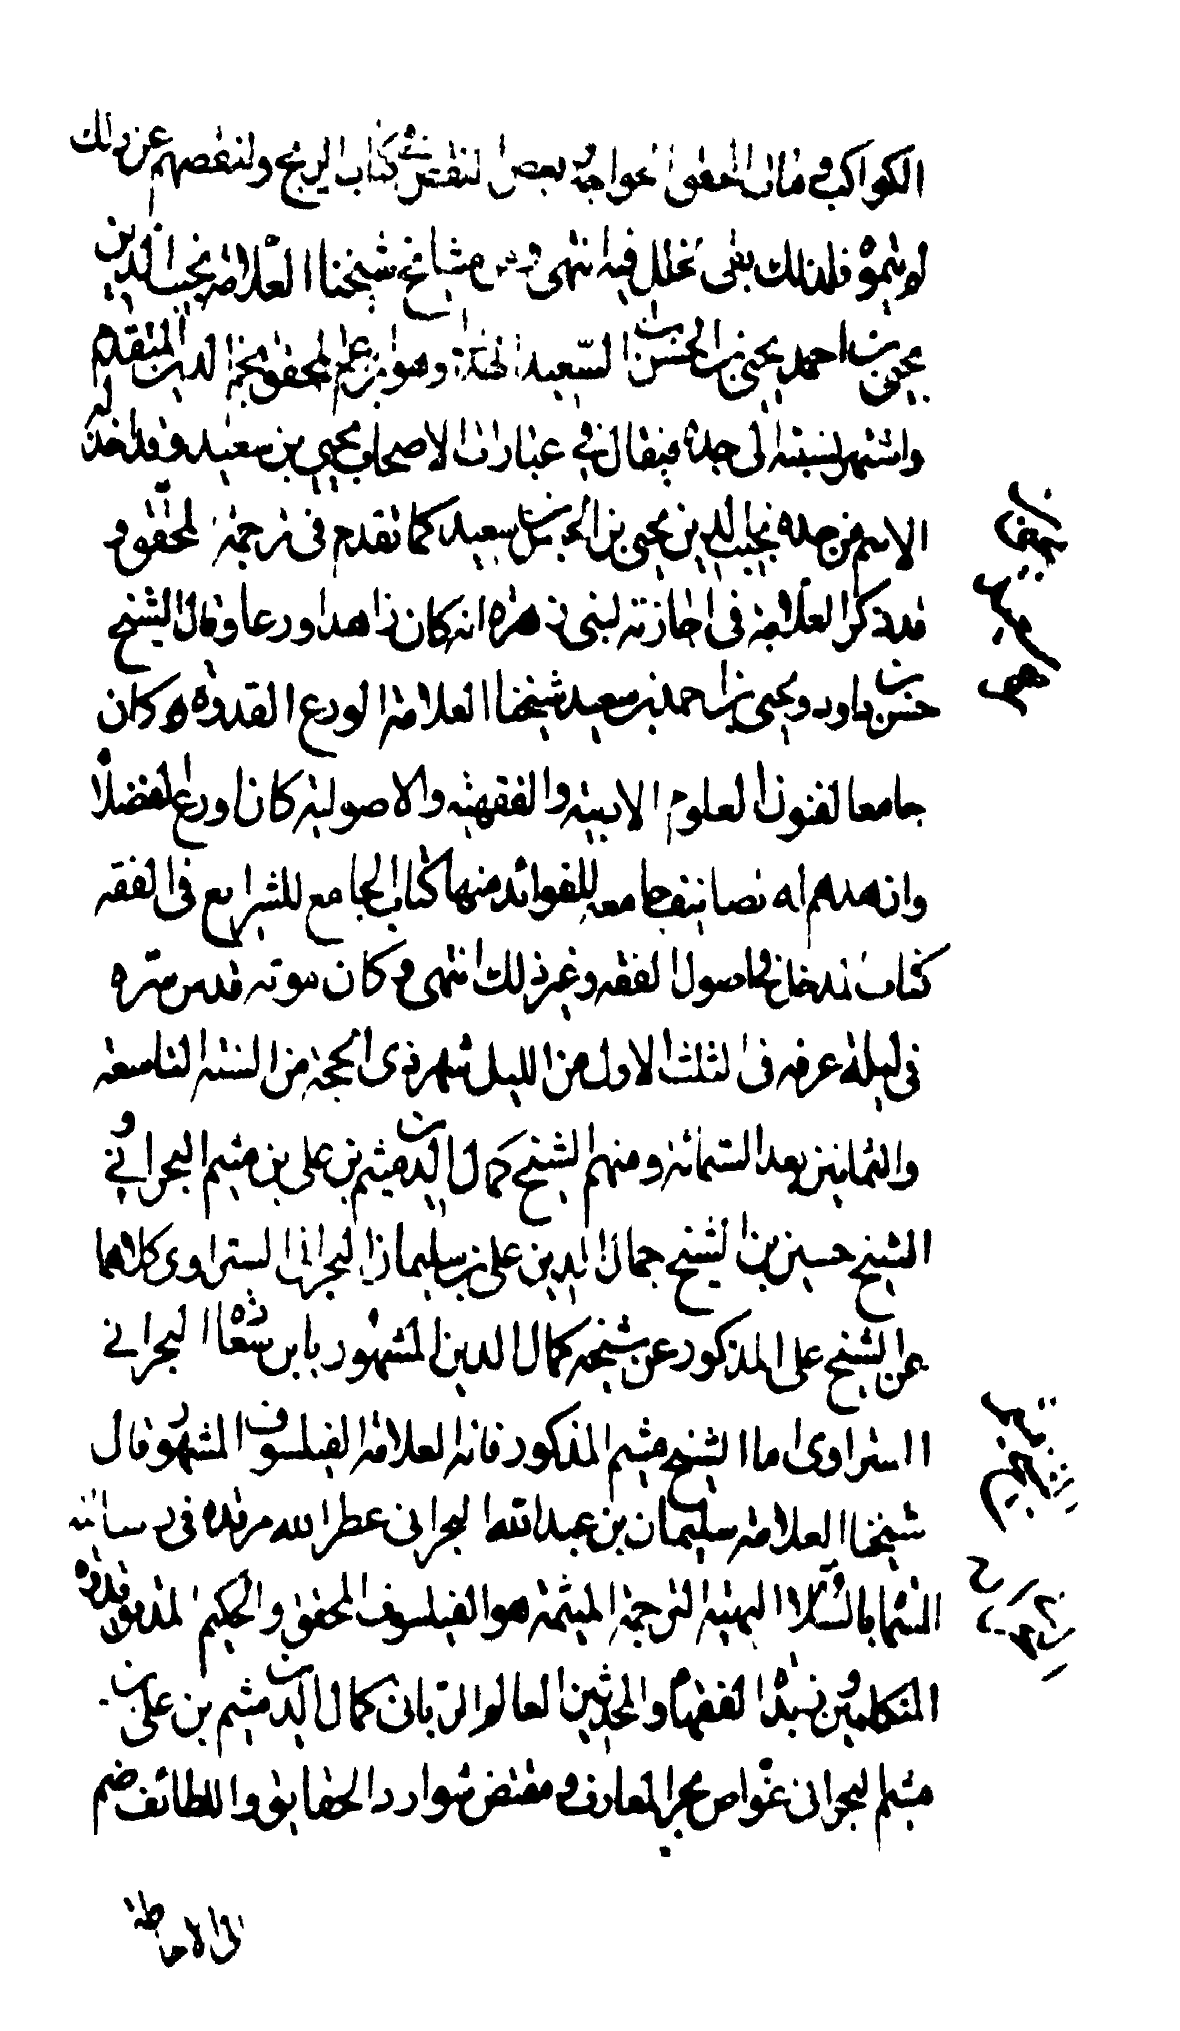 الكواكب و مات المحقق الخواجة بعض النقص في كتاب الزيج ولنقصهم عن ذلك
لم يتموه فلذلك بقى تخلل فيه انتهى ومن مشايخ شيخنا العلامة نجيب الدين
يحيى بن احمد بن يحيى بن الحسن بن السعيد الحلي وهو ابن عم المحقق نجم الدين المتقدم
واشتهر بنسبته الى جده فيقال في عبارات الاصحاب يحيى بن سعيد وقد اخذ له
الاسم من جده نجيب الدين يحيى بن الحسن بن سعيد كما تقدم في ترجمة المحقق و
قد ذكر العلامة في اجازته لبنى زهره انه كان زاهدا ورعا وقال الشيخ
حسن بن داود ويحيى بن احمد بن سعيد شيخنا العلامة الورع القدوة و كان
جامعا لفنون العلوم الادبية والفقهية والاصولية كان اورع الفضلا
وازهدهم له تصانيف جامعه للفوائد منها كتاب الجامع للشرايع في الفقه
كتاب المدخل في اصول الفقه وغير ذلك انتهى و كان موته قدس سره
في ليلة عرفه في الثلث الاول من الليل شهر ذى الحجة من السنة التاسعة
والثمانين بعد الستمائة ومنهم الشيخ كمال الدين ميثم بن على بن ميثم البحراني و
الشيخ حسين بن الشيخ جمال الدين على بن سليمان البحراني الستراوى كلاهما
عن الشيخ على المذكور عن شيخه كمال الدين المشهور بابن سعادة البحراني
الستراوى اما الشيخ ميثم المذكور فانه العلامة الفيلسوف المشهور قال
شيخنا العلامة سليمان بن عبد الله البحراني عطر الله مرقده في رسالته
المسماة بالسلافة البهية الترجمة الميثمية هو الفيلسوف المحقق والحكيم المدقق قدوة
المتكلمين و زبدة الفقهاء والمحدثين العالم الرباني كمال الدين ميثم بن على بن
ميثم البحراني غواص بحر المعارف و مقتنص شوارد الحقايق واللطائف ضم
الى الاحاطة